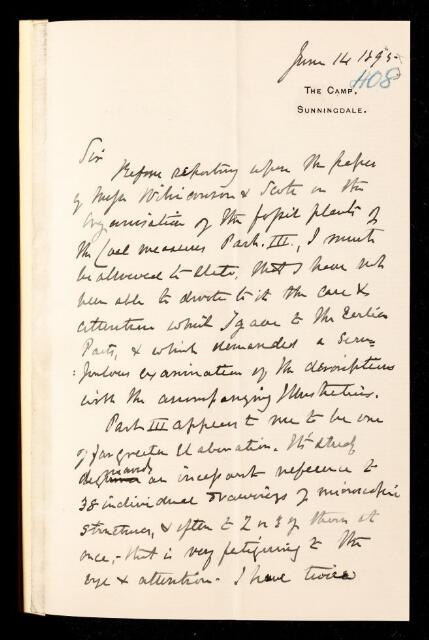 June 14 1895
408
THE CAMP,
SUNNINGDALE.
Sir
Before reporting upon the paper
of Messrs Williamson & Scott on the
Organisation of the fossil plants of
the Coal measures Part. III., I must
be allowed to state, that I have not
been able to devote to it the care &
attention which I gave to the Earlier
Parts, & which demanded a scru-
:pulous examination of the descriptions
with the accompanying Illustrations.
Part III appears to me to be one
of far greater Elaboration. Its study
demands an incessant reference to
38 individual drawings of microscopic
structures, & often to 2 or 3 of them at
once,- that is very fatiguing to the
eye & attention- I have twice